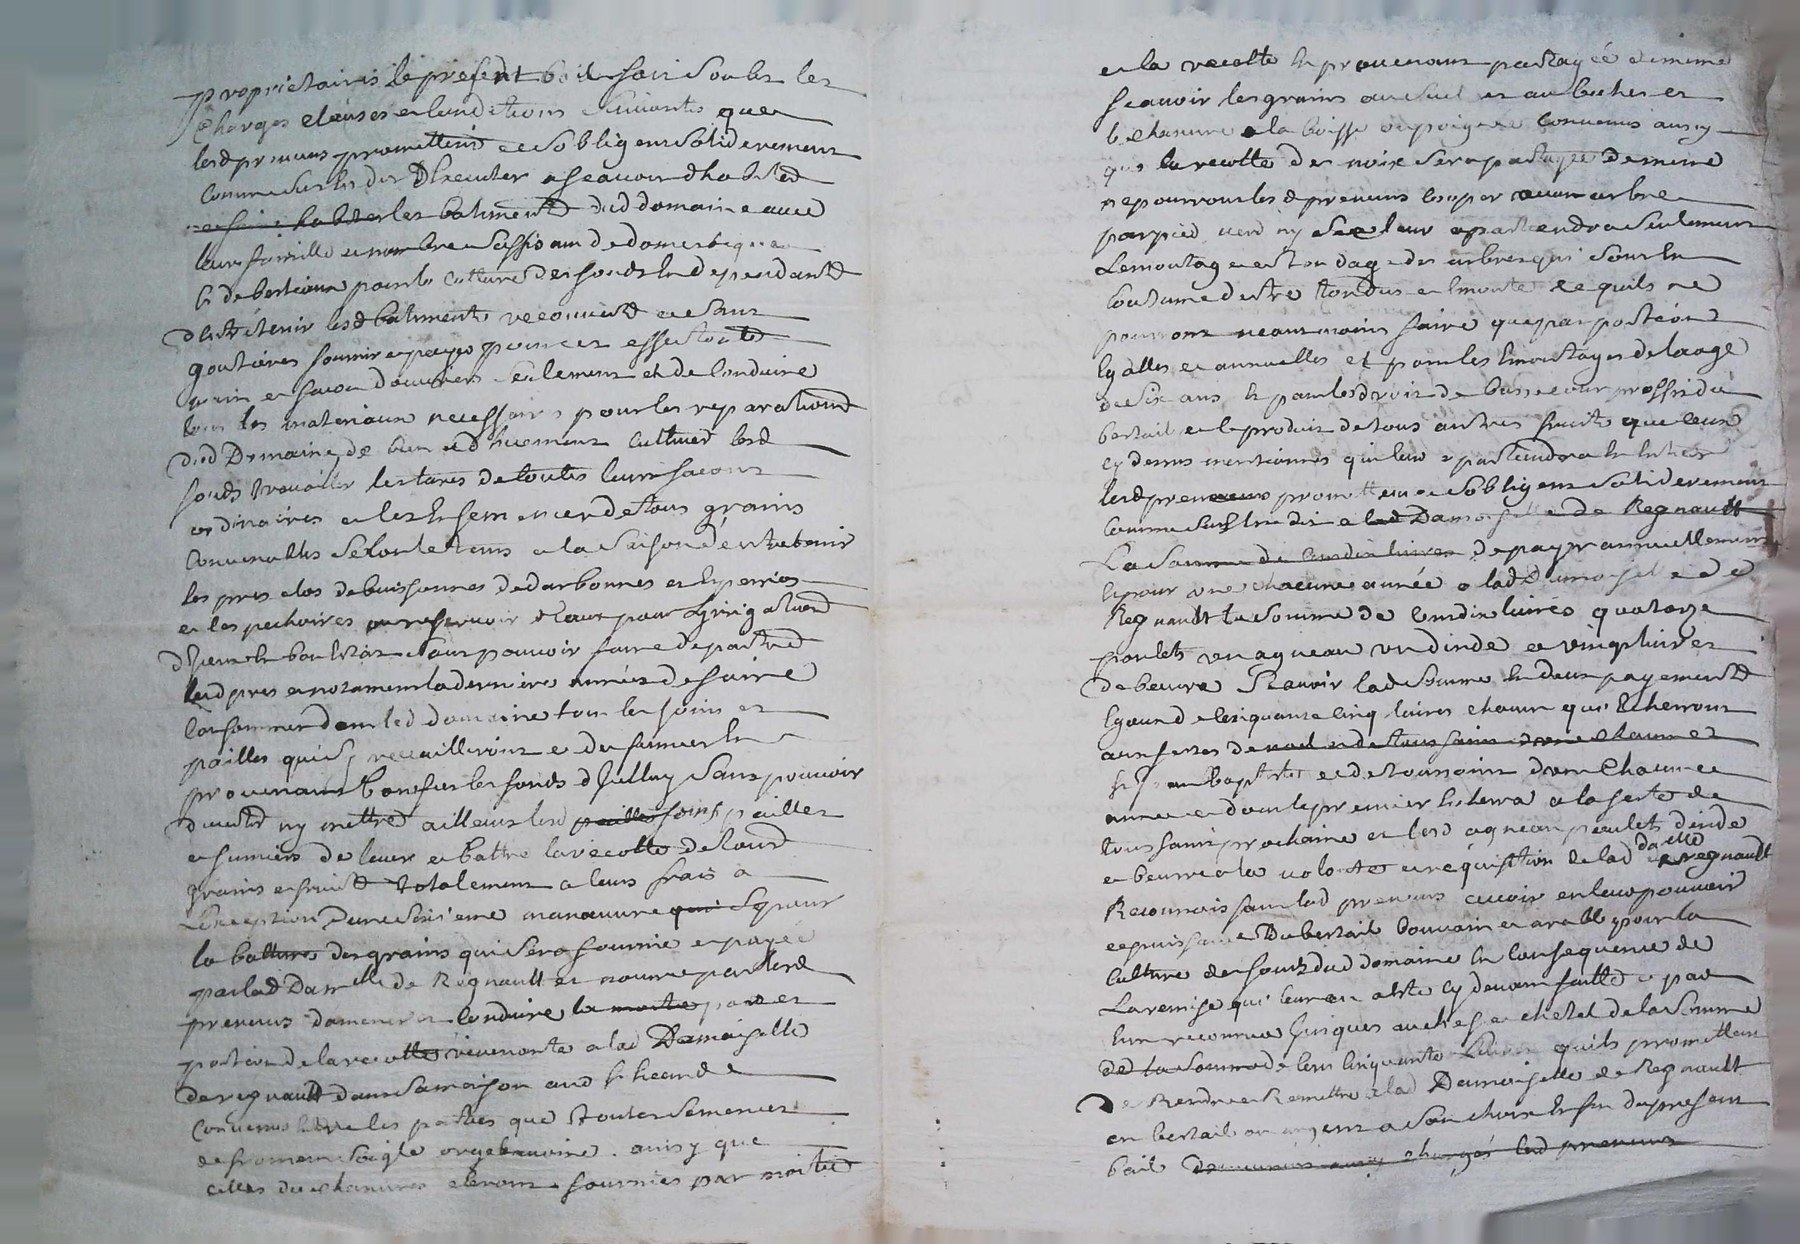 proprietaires le present bail fait soubs les
charges clauses et conditions suivantes que
lesd preneurs promettent et sobligent solidairement
comme sus est dit dexecuter a scavoir dhabiter
et faire habiter les batiments dud domaine avec
leur famille et nombre suffisant de domestiques
et de bestiaux pour la culture des fonds en dependants
dentretenir lesd batiments recouverts et sans
goutieres fournir et payer pour cet effet toute
main et facon douvriers seulement et de conduire
tous les materiaux necessaires pour les reparations
dud Domaine de bien et duement cultiver lesd
fonds travailler les terres de toutes leurs facons
ordinaires et les ensemencer de tous grains
convenables selon le tems et la saison dentretenir
les pres clos de buissonnes dedarbonnes et
et les pechoires ou reservoir deaux pour Lirrigation
diceux en bon etat sans pouvoir faire depaitre
lesd pres et notament la derniere année de faire
consommer dans led domaine tous les foins et
pailles quis y recueilliront et des fumiers en
provenant bonifier les fonds dicelluy sans pouvoir
divertir ny mettre ailleurs lesd pailles foins pailles
et fumiers de lever et battre la recolte desd
grains et fruits totalement a leurs frais a
Lexception dune manoeuvre qui sg pour
la batture des grains qui sera fournie et payée
par lad Damlle de Regnault et nourrie par lesd
preneurs damener et conduire la moitie part et
portion de la recolte revenante a lad Damoiselle
de regnault dans sa maison aud
convenus entre les parties que toutes semences
de froment soigle orge et avoine. aussy que
celles du chanvres seront fournies par moitie
et la recolte en provenant partagée de meme
scavoir les grains au sueil et au bichet et
le chanvre a la boisse ou poignee convenus aussy
que la recolte des noix sera partagée de meme
ne pourront lesd preneurs couper aucun arbre
par pied verd ny sec leur apartiendra seulement
Lemontage et tondage des arbres qui sont en
coutume destre tondus et emonté ce quils ne
pourront neanmoins faire que par portion
egalles et annuelles et pour les emontages de laage
de six ans et pour les droit de basse cour proffit du
bestail et le produit de tous autres fruits que ceux
cy dessus mentionnés qui leur apartiendra en entier
lesd preneurs promettent et sobligent solidairement
comme sus est dit a lad Damoiselle de Regnault
La somme de cent dix livres de payer annuellement
et pour une chacune année a lad Damoiselle de
Regnault la somme de cent dix livres quatorze
poulets un agneau un dinde et vingt livres
de beurre scavoir lad somme en deux payements
egaux de cinquante cinq livres chacun qui echerront
aux festes de noel et de toussaint dune chacune
st jean baptiste et de toussaint dune chacune
annee dont le premier echerra a la feste de
toussaint prochaine et lesd agneau poulets dinde
et beurre a la volonté et requisition de lad dalle de regnault
Reconnaissant lesd preneurs avoir en leur pouvoir
et puissance du bestail bouvain et arable pour la
culture des fonds dud domaine en consequence de
La remise qui leur en a été cy devant faitte et par
eux reconnue jusques au chef et chetel de la somme
de la somme de cent cinquante Livres quils promettent
de Rendre et Remettre a lad Damoiselle de Regnault
en bestail ou argent a son choix en fin du present
bail demeureront aussy chargés lesd preneurs